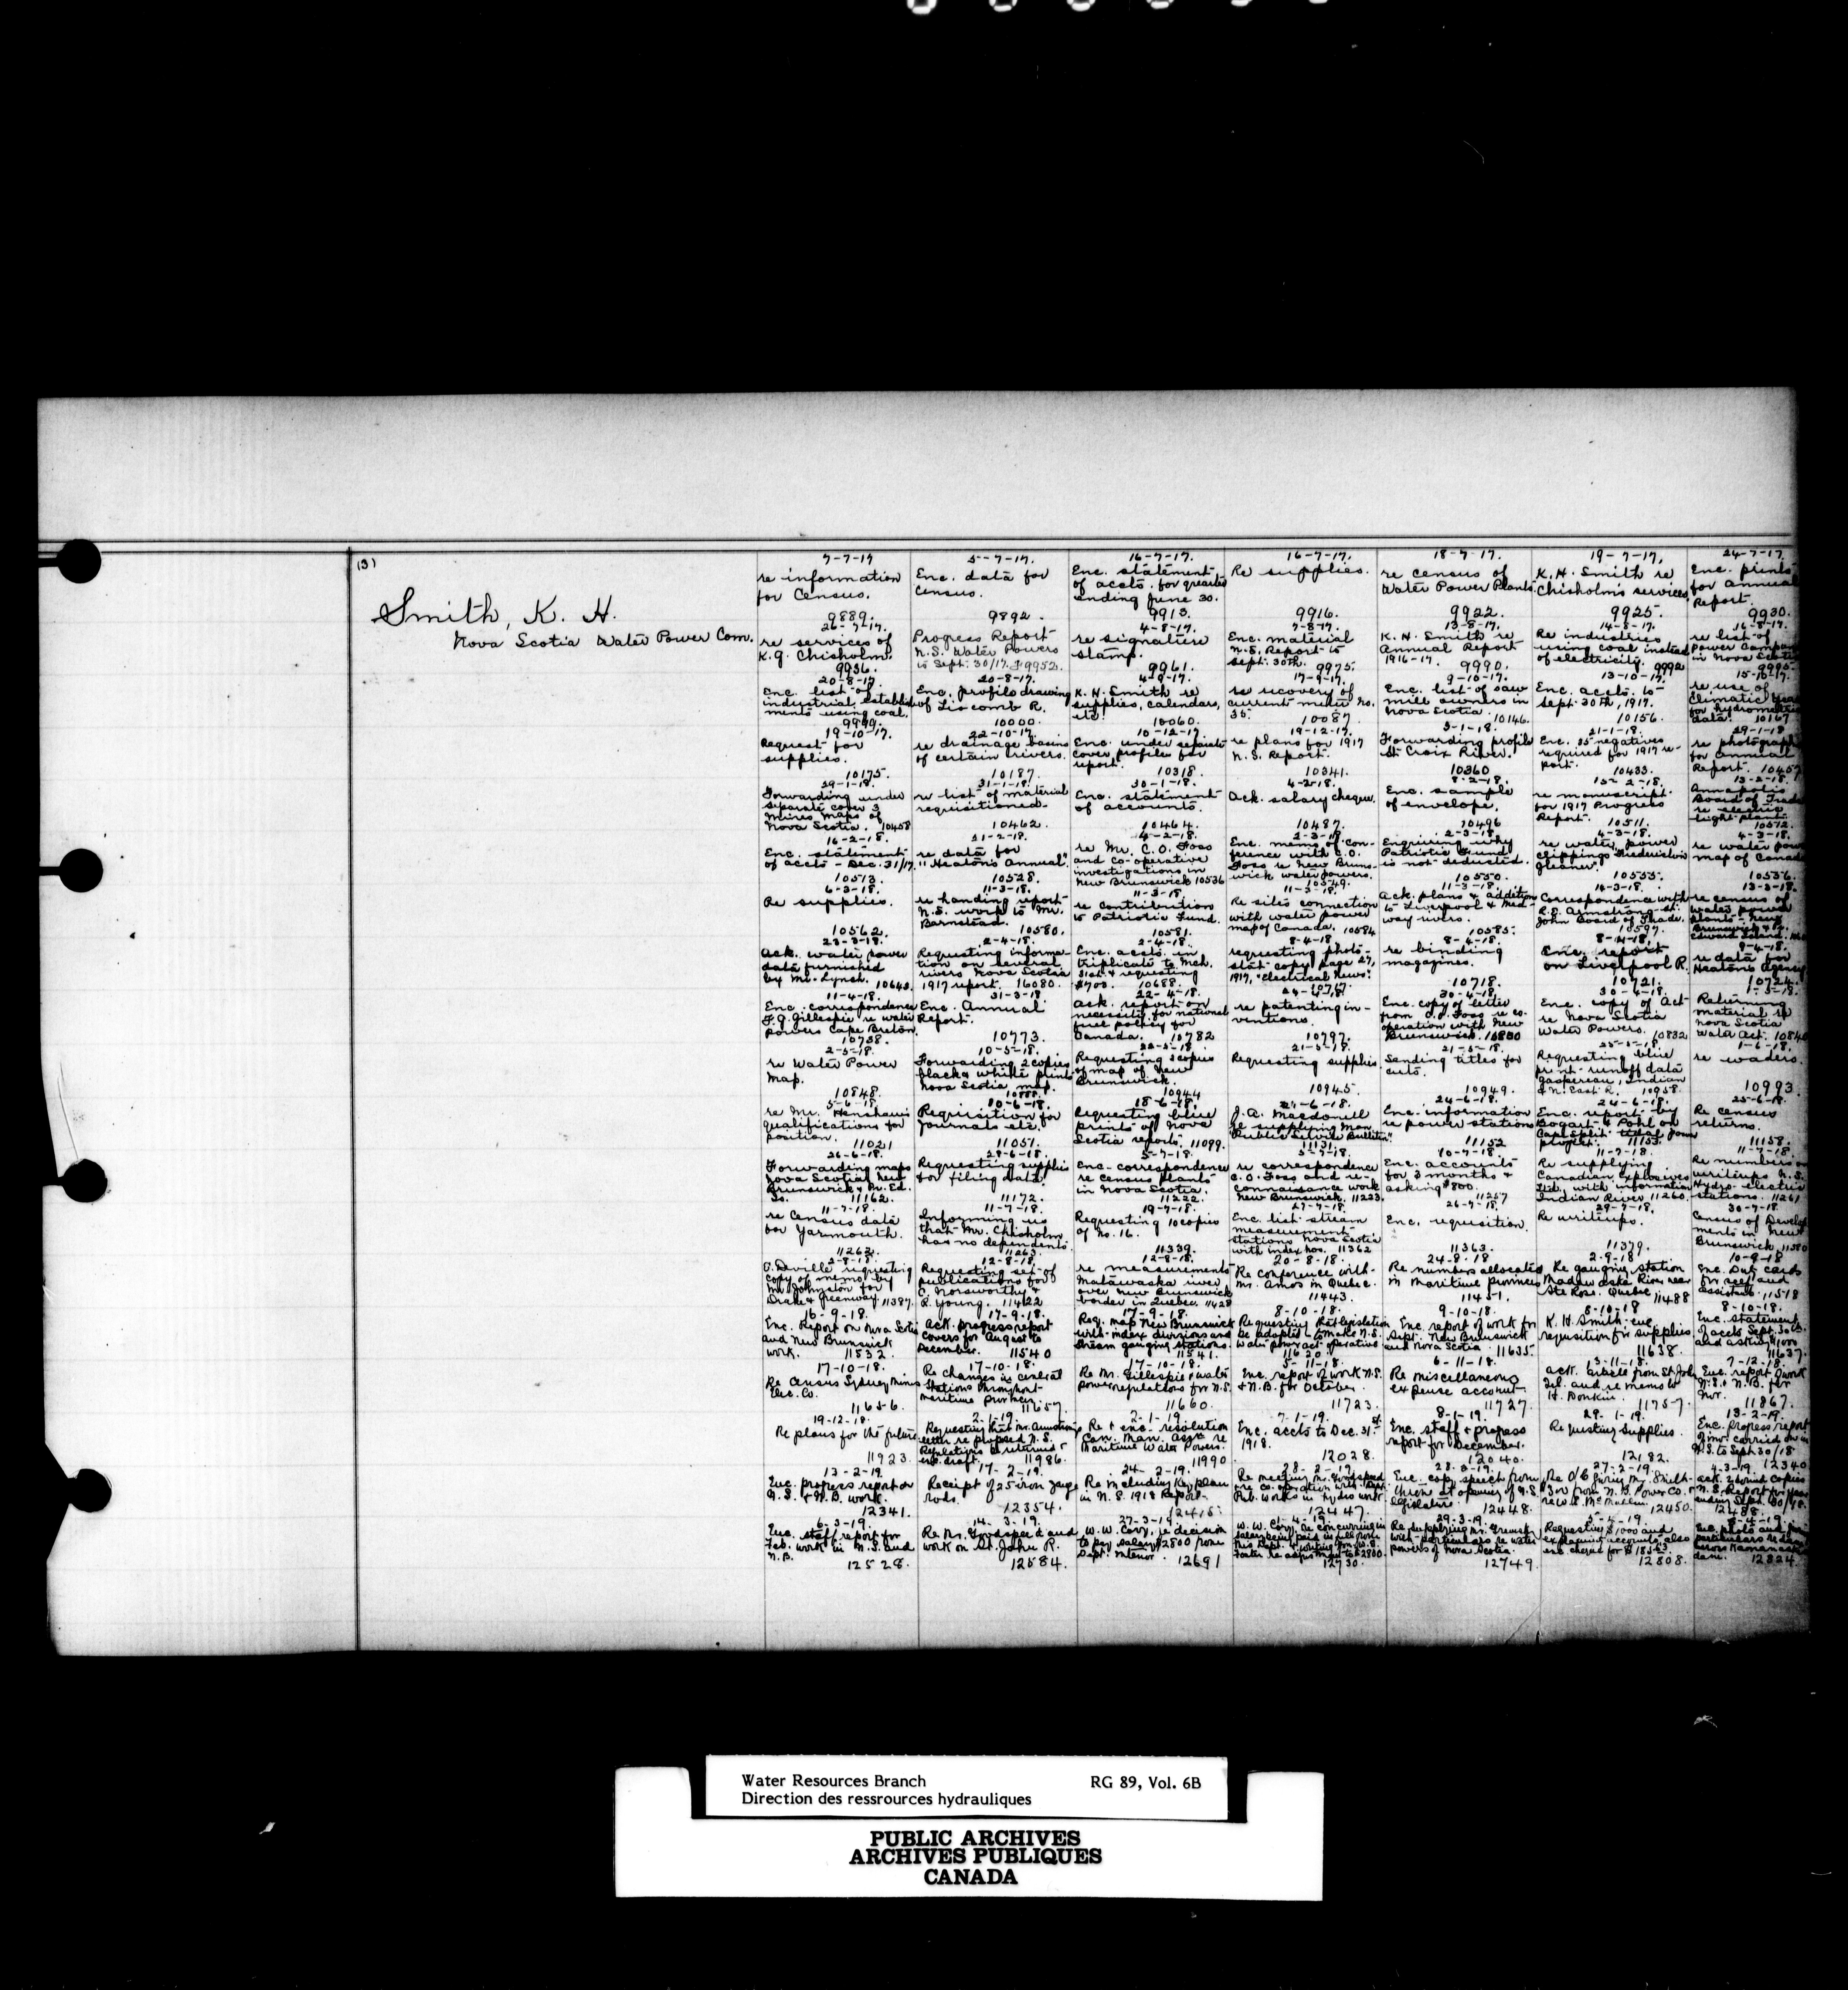 (3)
Smith, K. H.
Nova Scotia Water Power Com.
7-7-17
re information
for Census.
9889.
5-7-17.
Enc. data for
Census.
9892.
16-7-17.
Enc. statement
of accts. for quarter
ending June 30.
9913.
16-7-17.
Re supplies.
9916.
18-7-17.
re census of
Water Power Plants.
9922.
19-7-17.
K. H. Smith re
Chisholm's services.
9925.
24-7-17
Enc. prints
for annual
Report.
9930.
26-7-17.
re services of
K. G. Chisholm.
9936.
Progress Report
N.S. Water Powers
to Sept. 30/17. 9952.
4-8-17.
re signature
stamp.
9961.
7-8-17.
Enc. material
N.S. Report to
Sept. 30th. 9975.
13-8-17.
K. H. Smith re
Annual Report
1916-17. 9990.
14-8-17.
Re industries
using coal instead
of electricity. 9992
16-8-17.
re list of
power
in Nova
9995.
20-8-17
Enc. list of
industrial establish-
ments using coal.
9999.
20-8-17.
Enc. profile drawing
of Liscomb R.
10000.
4-9-17.
K. H. Smith re
supplies, calendars,
etc.
10060.
17-9-17.
re recovery of
current meter No.
35.
10087
9-10-17.
Enc. list of saw
mill owners in
Nova Scotia. 10146.
13-10-17.
Enc. accts. to
Sept. 30th, 1917.
10156.
15-10-17.
re use of
Climatic
for hydrometric
data. 10167
19-10-17.
Request for
supplies.
10175.
22-10-17.
re drainage basins
of certain rivers.
10187.
10-12-17
Enc. under separate
cover profiles for
report.
10318.
19-12-17.
re plans for 1917
N.S. Report.
10341.
3-1-18.
Forwarding profile
St. Croix River.
10360
21-1-18.
Enc. 35 negatives
required for 1917 re-
port.
10433.
29-1-18
re photographs
for annual
Report. 10457
29-1-18.
Forwarding under
separate cover 3
mines maps of
Nova Scotia. 10458
31-1-18.
re list of material
requisitioned.
10462.
30-1-18.
Enc. statement
of accounts.
10464.
4-2-18.
Ack. salary cheque.
10487.
8-2-18.
Enc. sample
of envelope.
10496
15-2-18.
re manuscript
for 1917 Progress
Report. 10511.
13-2-18.
Annapolis
Board of Trade
re electric
light plant.
10512.
16-2-18.
Enc. statement
of accts - Dec. 31/17.
10513.
21-2-18.
re data for
"Heaton's Annual".
10528.
re Mr. C. O. Foss
and co-operative
investigations in
New Brunswick 10536
2-3-18
Enc. memo of con-
ference with C.O.
Foss re New Bruns-
wick water powers.
10549.
2-3-18.
Enquiring why
Patriotic Fund
is not deducted.
10550.
4-3-18.
re water power
clippings Fredericton
Gleaner.
10555.
4-3-18.
re water power
map of Canada
10556.
6-3-18.
Re supplies.
10562.
11-3-18.
re handing report
N.S. work to Mr.
Barnstead.
10580.
11-3-18
re contribution
to Patriotic Fund.
10581.
11-3-18.
Re sites connection
with water power
map of Canada. 10584
11-3-18.
Ack. plans & addition
to Liverpool & Med-
way rivers.
10585.
14-3-18.
Correspondence with
R.E. Armstrong St.
John Board of Trade.
10597.
13-3-18.
re census of
water power
plants - New
Brunswick & Pr.
Edward Island.
23-3-18.
Ack. water power
data furnished
by Mr. Lynch. 10643.
2-4-18.
Requesting informa-
tion on several
rivers Nova Scotia
1917 report. 16080.
2-4-18.
Enc. accts. in
triplicate to Mch.
31st. & requesting
$703. 10688.
8-4-18
requesting photo-
stat copy page 27,
1917, "Electrical News".
10717.
8-4-18.
re binding
magazines.
10718.
8-4-18.
Enc. report
on Liverpool R.
10721.
9-4-18.
re data for
Heatons Agency
10724.
11-4-18.
Enc. correspondence
F. G. Gillespie re water
powers Cape Breton.
10738.
31-3-18
Enc. Annual
Report.
10773.
22-4-18.
Ack. report on
necessity for national
fuel policy for
Canada. 10782
24-4-18.
re patenting in-
ventions.
10797.
30-4-18.
Enc. copy of letter
from C.O. Foss re co-
operation with New
Brunswick. 10800
30-4-18.
Enc. copy of Act
re Nova Scotia
Water Powers. 10832
1-5-18.
Returning
material re
Nova Scotia
Water Act. 10840
2-5-18.
re Water Power
Map.
10848.
10-5-18.
Forwarding 2 copies
black & white print
Nova Scotia map.
10888.
22-5-18.
Requesting 2 copies
of map of New
Brunswick.
10944
21-5-18.
Requesting supplies.
10945.
21-5-18.
Sending titles for
cuts.
10949.
25-5-18.
Requesting blue
print runoff data
Gaspereau, Indian
& N. East R. 10958.
1-6-18.
re waders.
10993
5-6-18.
re Mr. Henshaw's
qualifications for
position.
11021
10-6-18.
Requisition for
journals etc.
11051.
18-6-18.
Requesting blue
prints of Nova
Scotia reports. 11099.
21-6-18.
J. A. Macdonell
re supplying Man.
"Public Service Bulletin".
11131.
24-6-18.
Enc. information
re power stations
11152
24-6-18.
Enc. report by
Bogart & Pohl on
Cape Split tidal power
project. 11153.
25-6-18.
Re census
returns.
11158.
26-6-18.
Forwarding maps
Nova Scotia, New
Brunswick & Pr. Ed.
Is. 11162.
29-6-18.
Requesting supplies
for filing data.
11172.
5-7-18.
Enc. correspondence
re census plants
in Nova Scotia.
11222.
5-7-18.
re correspondence
C. O. Foss and re-
connaisance work
New Brunswick. 11223.
10-7-18.
Enc. accounts
for 3 months &
asking $800.
11257
11-7-18.
Re supplying
Canadian Explosives
Ltd. with information
Indian River 11260.
Re numbers on
writeups N.S.
Hydro-electric
stations. 11261
11-7-18.
re Census data
for Yarmouth.
11262.
11-7-18.
Informing us
that Mr. Chisholm
has no dependents.
11263.
19-7-18.
Requesting 10 copies
of No. 16.
11339.
27-7-18.
Enc. list stream
measurement
stations Nova Scotia
with index nos. 11362
26-7-18.
Enc. requisition.
11363.
29-7-18.
Re writeups.
11379.
30-7-18.
Census of Develop
ments in New
Brunswick. 11380
2-8-18.
E. Deville requesting
copy of memo by
Mr. Johnston for
Drake & Greenway. 11387.
12-8-18.
Requesting set of
publications for
C. Norsworthy &
R. Young. 11422
12-8-18.
re measurements
Matawaska river
over New Brunswick
border in Quebec. 11428
20-8-18.
Re conference with
Mr. Amos in Quebec.
11443.
24-8-18
Re numbers allocated
in Maritime Provinces
11451.
2-9-18
Re gauging station
Madawaska River near
Ste Rose, Quebec 11488
10-9-18
Enc. Duty cards
for self and
assistants. 11518
16-9-18.
Enc. Report on Nova Scotia
and New Brunswick
work. 11532.
17-9-18.
Ack. progress report
covers for August to
December. 11540
17-9-18.
Req. map New Brunswick
with index divisions and
stream gauging stations.
11541.
8-10-18.
Requesting that legislation
be adopted to make N.S.
Water power act operative
11620.
9-10-18.
Enc. report of work for
Sept. New Brunswick
and Nova Scotia. 11635.
8-10-18
K. H. Smith enc.
requisition for supplies.
11638.
8-10-18.
Enc. statement
of accts Sept. 30th.
and asking $1000
11637.
17-10-18.
Re census Sydney Mines
Elec. Co.
11656.
17-10-18.
Re changes in central
Stations throughout
maritime provinces.
11657.
17-10-18.
Re Mr. Gillespie & water
power regulations for N.S.
11660.
5-11-18.
Enc. report of work N.S.
& N.B. for October.
11723.
6-11-18.
Re miscellaneous
expense account
11727.
13-11-18.
Ack. article from St. John
Tel. and re memo to
H. Donkin.
11757.
7-12-18.
Enc. report of work
N.S. & N.B. for
Nov.
11867.
19-12-18.
Re plans for the future
11923.
2-1-19
Requesting that Mr. Armstrong's
letter re proposed N.S.
Regulations be returned
enc. draft. 11986.
2-1-19.
Re & enc. resolution
Can. Man. Assn re
Maritime Water Powers.
11990
7-1-19.
Enc. accts to Dec. 31st.
1918.
12028.
8-1-19.
Enc. staff & progress
report for December.
12040.
29-1-19.
Requesting supplies.
12182.
13-2-19.
Enc. Progress report
of inv. carried on in
N.S. to Sept 30/18
12340
13-2-19.
Enc. progress report on
N.S. & N.B. work.
12341.
17-2-19.
Receipt of 25 iron gauge
rods.
12354.
24-2-19.
Re including Key plan
in N.S. 1918 Report.
12415.
28-2-19.
Re meeting Mr. Goodspeed
re co-operation with
Pub. Works in hydro work
12447.
28-2-19.
Enc. copy speech from
throne at opening of N.S.
legislature. 12448.
27-2-19.
12450.
4-3-19
Ack. 2 bound copies
N.S. Report for year
ending Sept. 30/18.
12488.
6-3-19.
Enc. staff report for
Feb. work in N.S. and
N.B. 12528.
14-3-19.
Re Mr. Goodspeed and
work on St. John R.
12584.
27-3-19
W. W. Cory, re decision
to pay salary $2800 from
Dept. Interior. 12691
1-4-19
W. W. Cory, re concurring in
salary being paid in full from
this Dept.
12730.
29-3-19.
Re supplying Mr.
with particulars re water
powers of Nova Scotia.
12749.
5-4-19.
Requesting $1000 and
explaining accounts also
enc. cheque for
12808.
8-4-19
Enc. photo and
particulars re dam
across Kananaskis
dam. 12824.
Water Resources Branch
RG 89, Vol. 6B
Direction des ressrources hydrauliques
PUBLIC ARCHIVES
ARCHIVES PUBLIQUES
CANADA